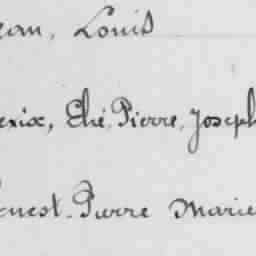 ean, Louis
erix, Elie, Pierre, Joseph
rnest. Pierre Marie